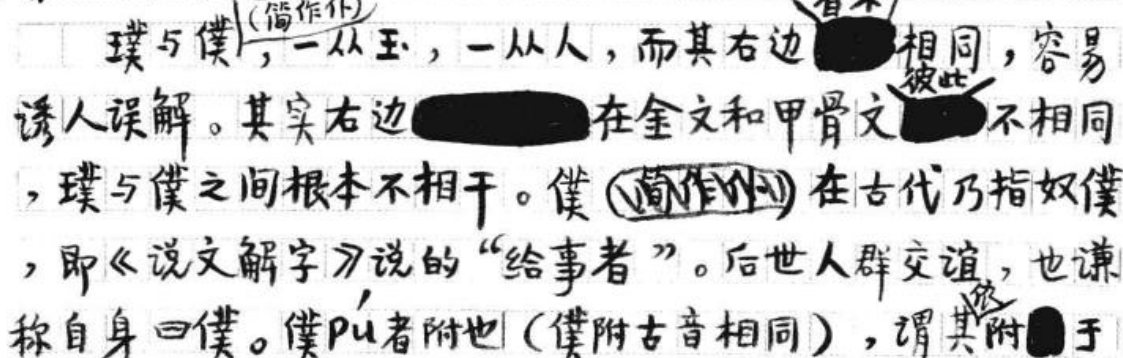 璞与僕(简作仆)，一从玉，一从人，而其右边看来相同，容易
诱人误解。其实右边在金文和甲骨文彼此不相同
，璞与僕之间根本不相干。僕在古代乃指奴僕
，即《说文解字》说的“给事者”。后世人群交谊，也谦
称自身曰僕。僕pú者附也（僕附古音相同），谓其依附于